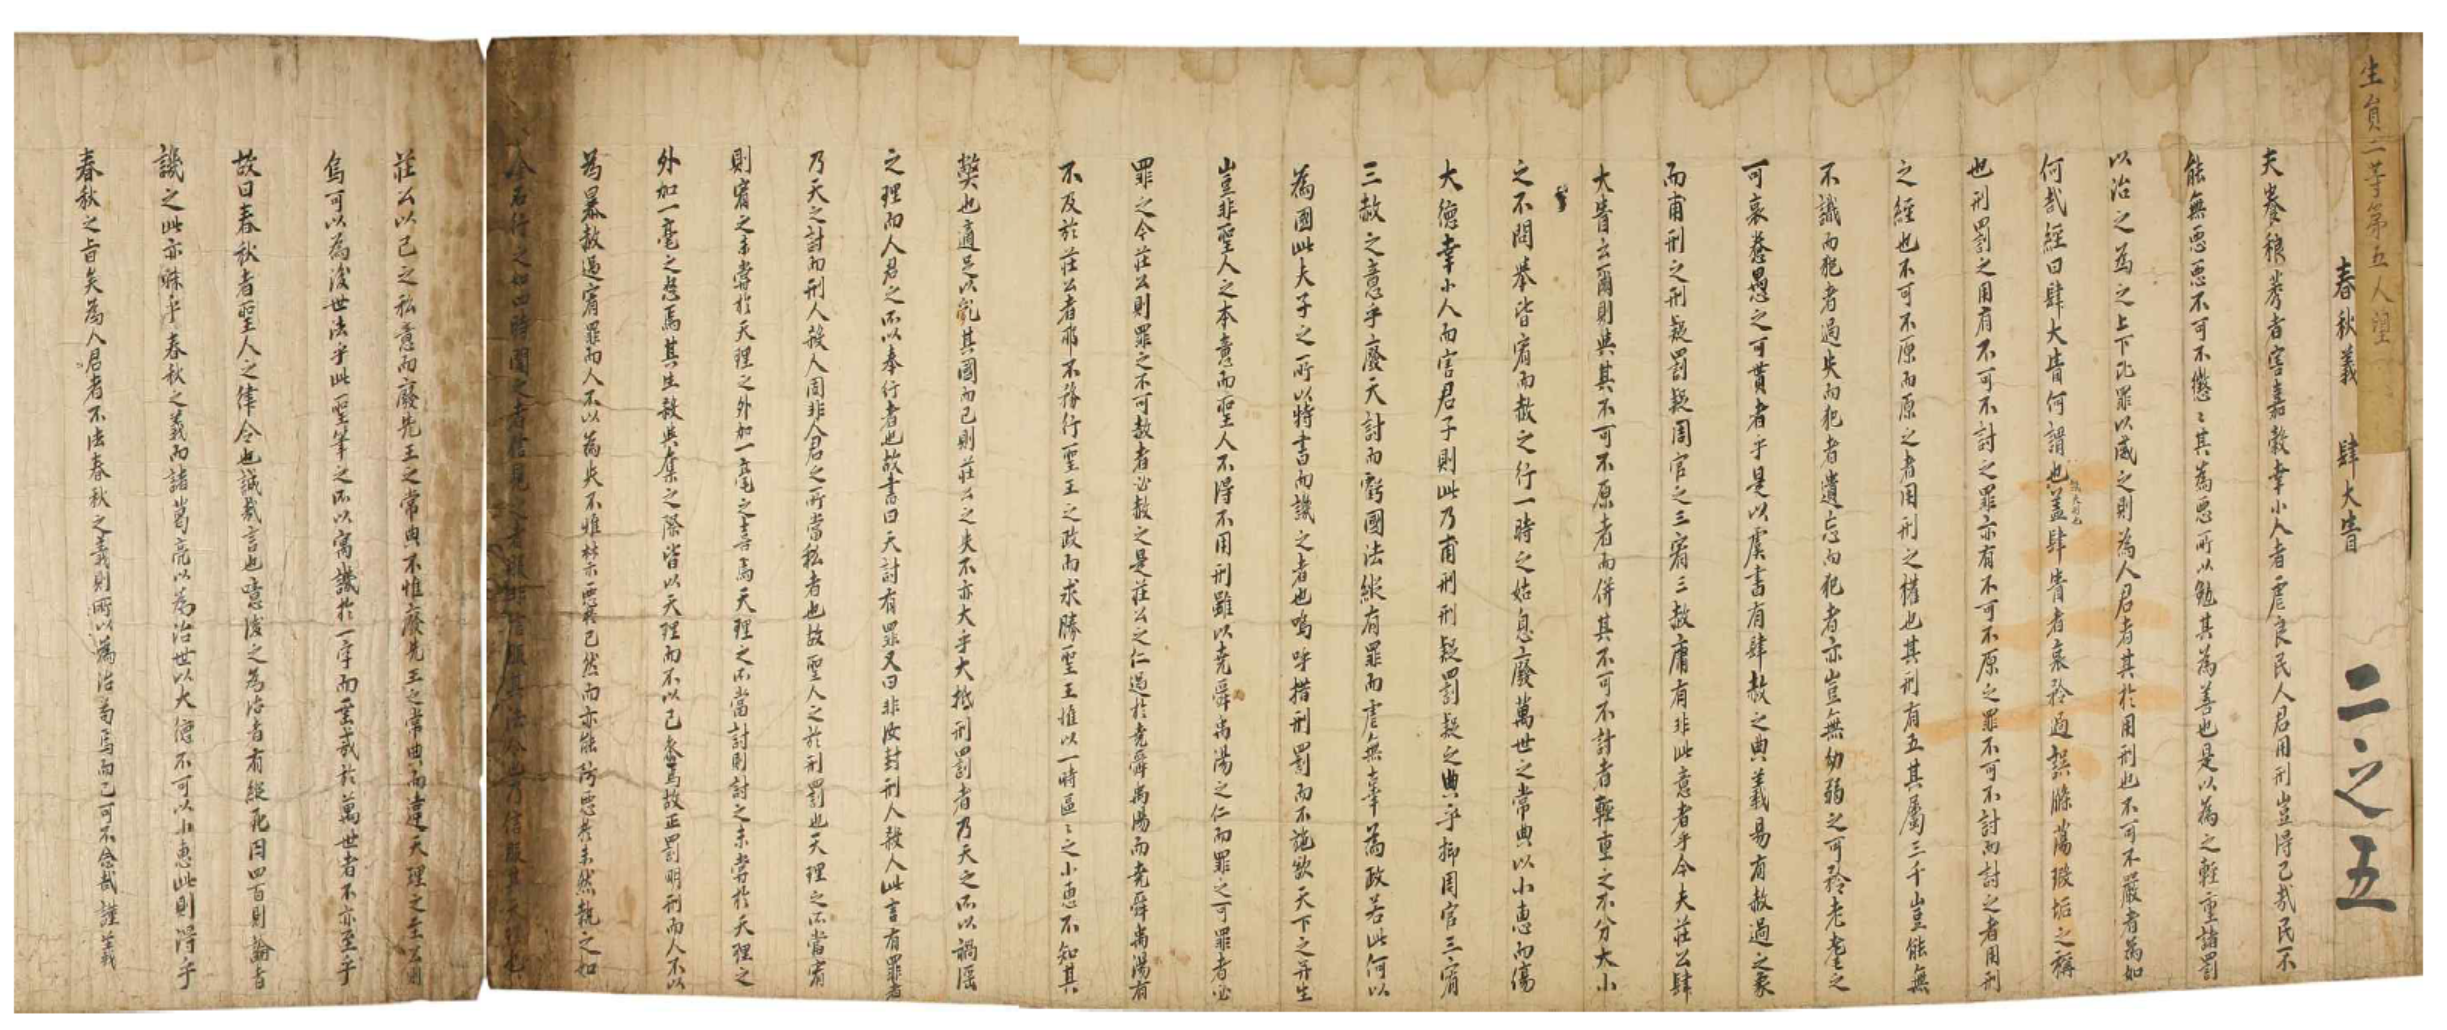 生員二等第五人望
春秋義 肆大眚 二之五
夫養稂莠者害嘉穀幸小人者虐良民人君用刑豈得已哉民不
能無惡惡不可不懲〻其為惡所以勉其為善也是以為之輕重諸罰
以治之為之上下正罪以威之則為人君者其於用刑也不可不嚴者為如
何哉經曰肆大眚何謂也盖肆眚者哀矜過誤滌蕩瑕垢之稱
也刑罰之用有不可不討之罪亦有不可不原之罪不可不討而討之者用刑
之經也不可不原而原之者用刑之權也其刑有五其屬三千豈能無
不識而犯者過失而犯者遺忘而犯者亦豈無幼弱之可矜老耄之
可哀惷愚之可貰者乎是以虞書有肆赦之典義易有赦過之象
而甫刑之刑疑罰疑周官之三宥三赦庸有非此意者乎今夫莊公肆
大眚云爾則與其不可不原者而併其不可不討者輕重之不分大小
之不問舉皆宥而赦之行一時之姑息廢萬世之常典以小惠而傷
大德幸小人而害君子則此乃甫刑刑疑罰疑之典乎抑周官三宥
三赦之意乎廢天討而虧國法縱有罪而虐無辜為政若此何以
為國此夫子之所以特書而譏之者也嗚呼措刑罰而不施欲天下之并生
豈非聖人之本意而聖人不得不用刑雖以堯舜禹湯之仁而罪之可罪者必
罪之今莊公則罪之不可赦者必赦之是莊公之仁過於堯舜禹湯而堯舜禹湯有
不及於莊公者耶不務行聖王之政而求勝聖王惟以一時區〻之小惠不知其
弊也適足以乱其國而已則莊公之失不亦大乎大抵刑罰者乃天之所以禍淫
之理而人君之所以奉行者也故書曰天討有罪又曰非汝封刑人殺人此言有罪者
乃天之討而刑人殺人固非人君之所當私者也故聖人之於刑罰也天理之所當宥
則宥之未嘗於天理之外加一毫之喜焉天理之所當討則討之未嘗於天理之
外加一毫之怒焉其生殺與奪之際皆以天理而不以己參焉故正罰明刑而人不以
為暴赦過宥罪而人不以為失不惟禁亦惡於已然而亦能防惡於未然執之如
金石行之如四時聞之者信見之者服非信服其法令也乃信服其天理也
莊公以己之私意而廢先王之常典不惟廢先王之常典而違天理之至公則
烏可以為後世法乎此聖筆之所以寓譏於一字而垂戒於萬世者不亦至乎
故曰春秋者聖人之律令也誠哉言也噫後之為治者有縱死囚四百則論者
譏之此亦昧乎春秋之義而諸葛亮以為治世以大德不可以小惠此則得乎
春秋之旨矣為人君者不法春秋之義則所以為治苟焉而已可不念哉謹義